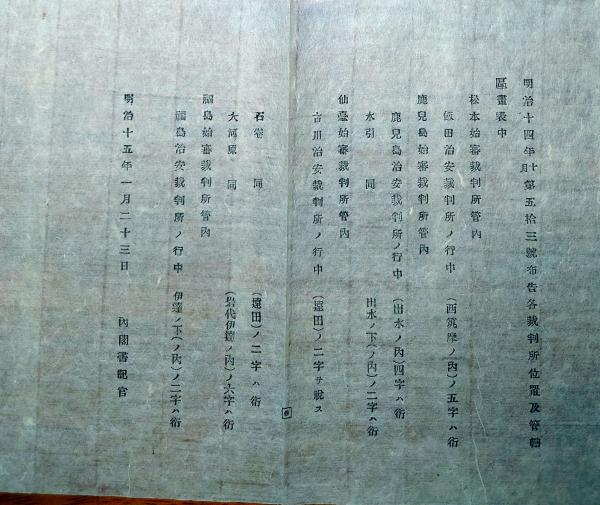 明治十四年十月第五拾三號布告各裁判所位置及管轄
區畫表中
松本始審裁判所管內
飯田治安裁判所ノ行中 (西筑摩ノ內)ノ五字ハ衍
鹿兒島始審裁判所管內
鹿兒島治安裁判所ノ行中 (出水ノ內)四字ハ衍
水引 同 出水ノ下(ノ內)ノ二字ハ衍
仙臺始審裁判所管內
古川治安裁判所ノ行中 (遠田)ノ二字ヲ脫ス
石卷 同 (遠田)ノ二字ハ衍
大河原 同 (岩代伊達ノ內)ノ六字ハ衍
福島始審裁判所管內
福島治安裁判所ノ行中 伊達ノ下(ノ內)ノ二字ハ衍
明治十五年一月二十三日 內閣書記官